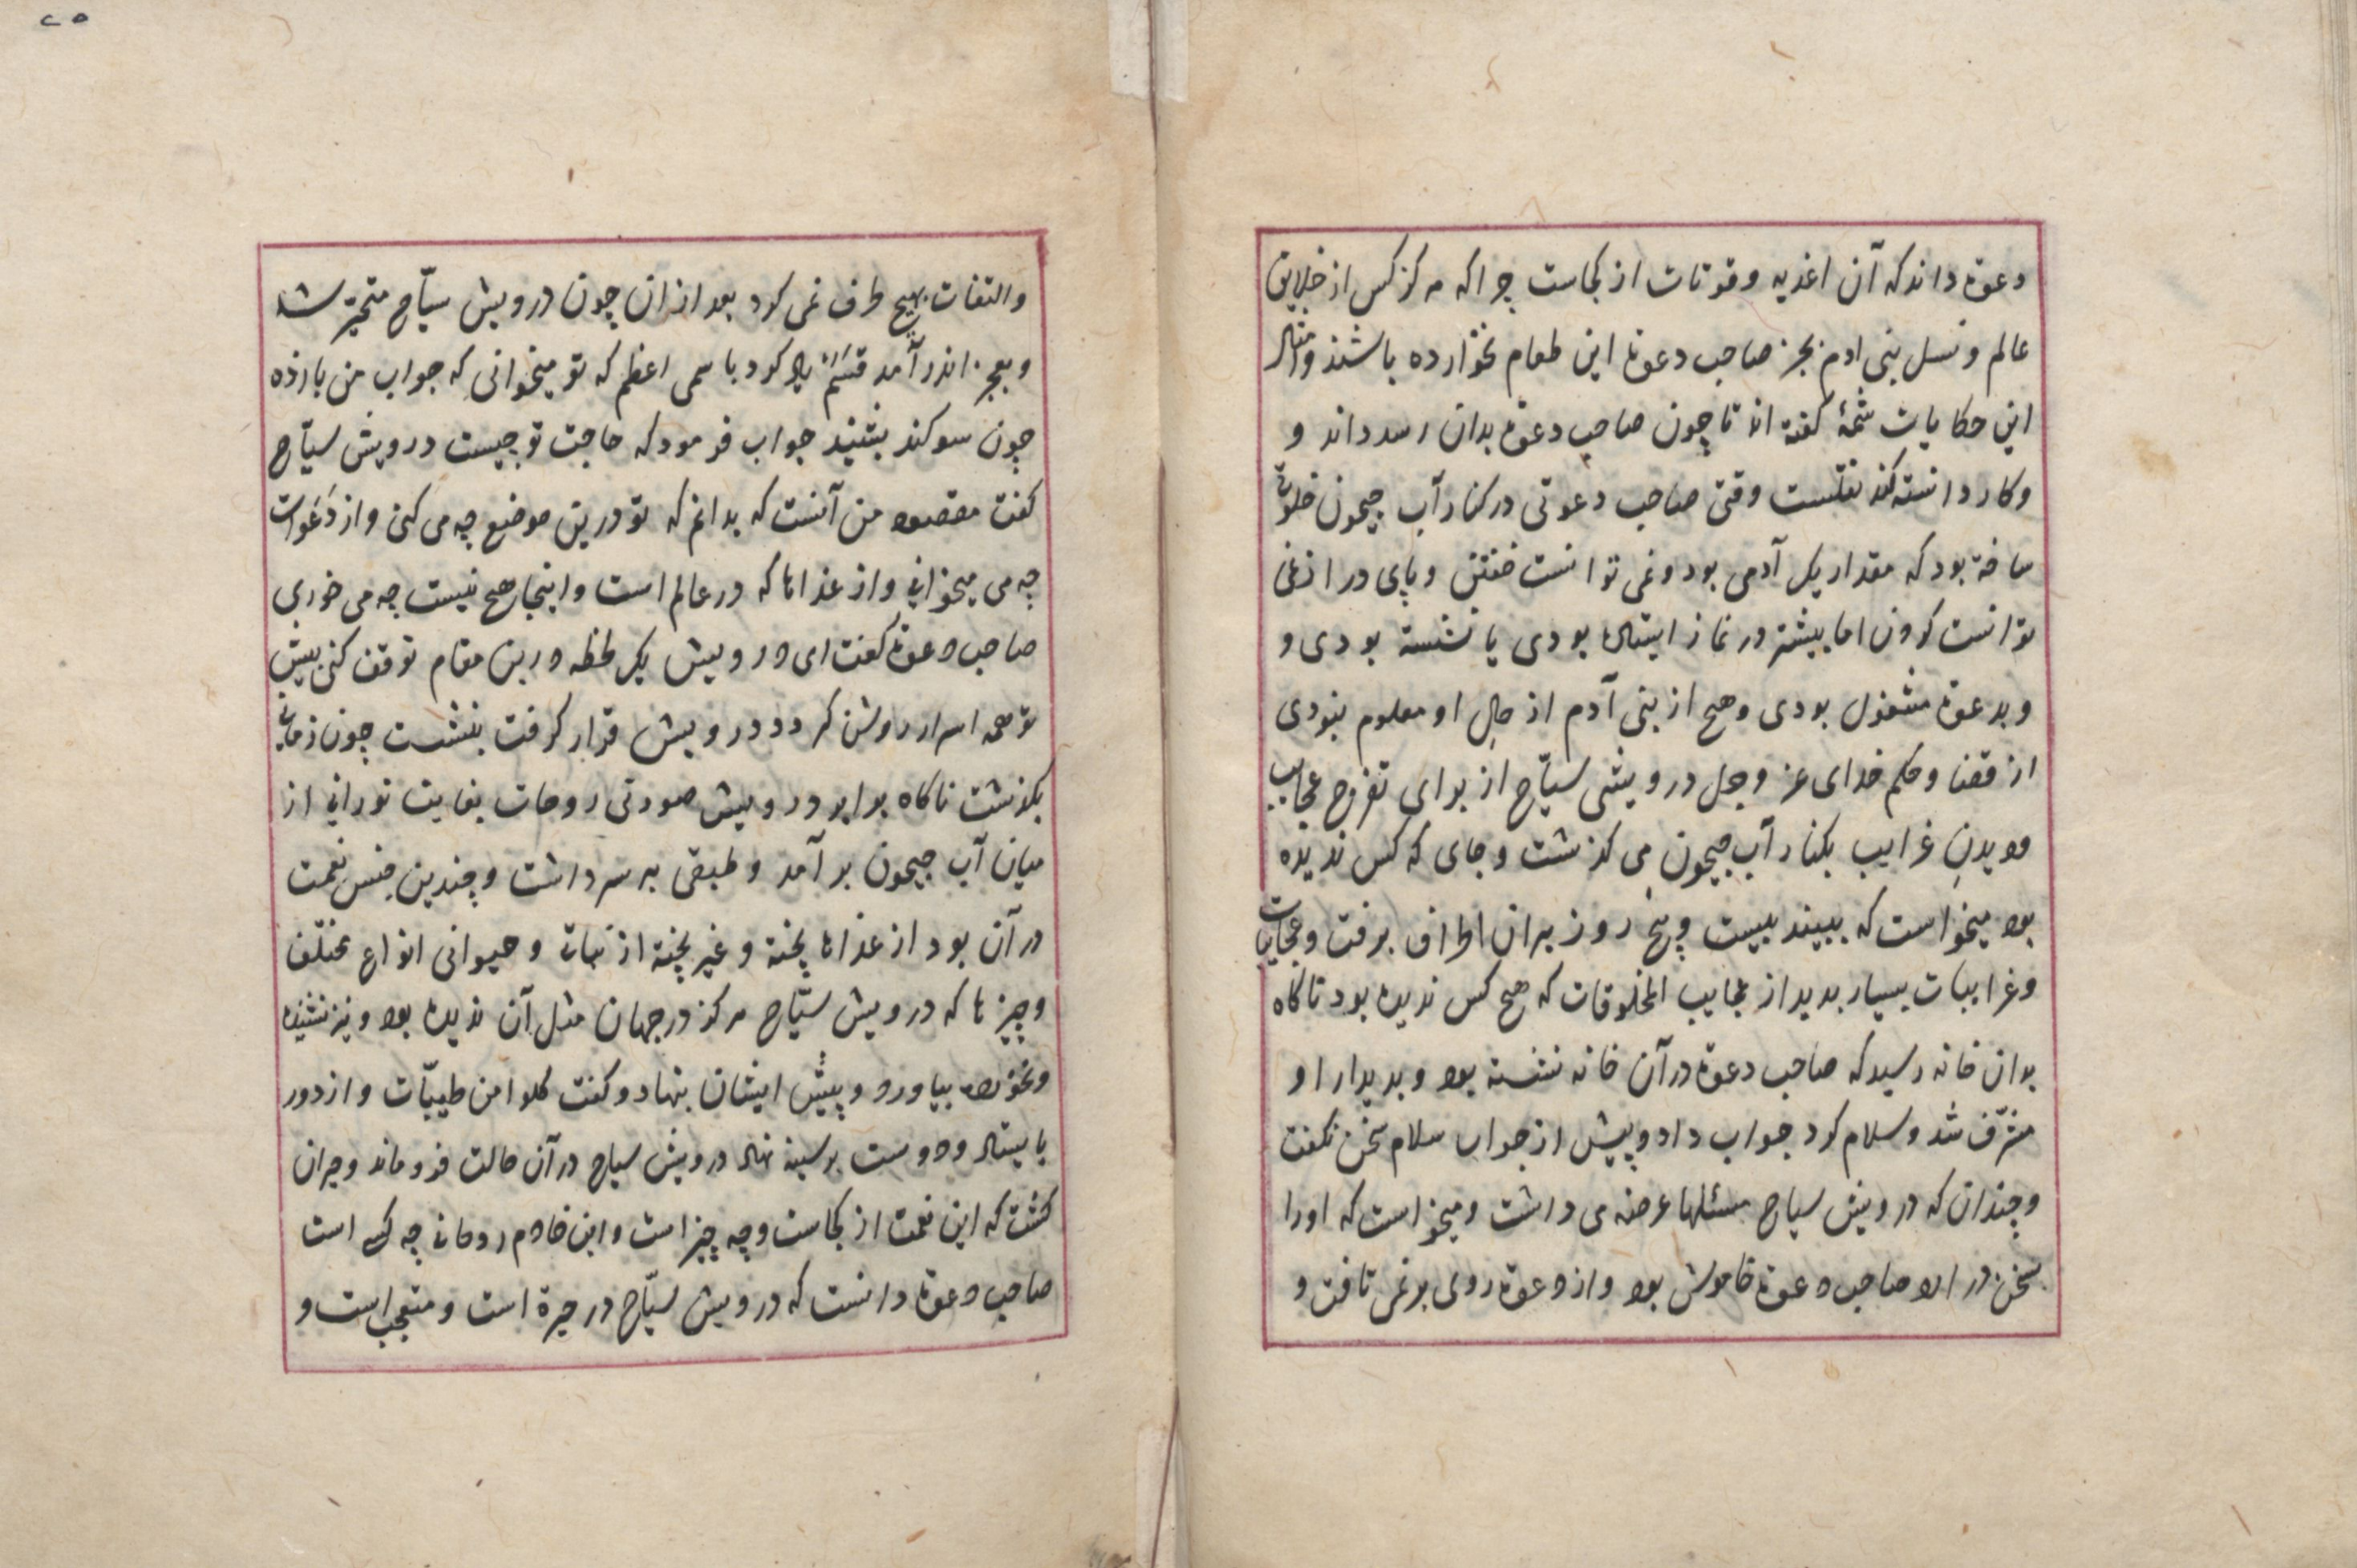 دعوة داند که آن اغذیه وقوتات از کجاست چرا که هرکز کس از خلایق
عالم ونسل بنی ادم بجز صاحب دعوة این طعام نخوارده باشند وامثال
این حکایات شمهٔ کفته اند تا چون صاحب دعوة بدان رسد داند و
وکار دانسته کند نقلست وقتی صاحب دعوتی در کنار آب جیحون خلوتی
ساخته بود که مقدار یک آدمی بود ونمی توانست خفتن وپای دراز نمی
توانست کردن اما بیشتر در نماز ایستاده بودی یا نشسته بودی و
وبدعوة مشغول بودی وهیچ از بنی آدم از حال او معلوم نبودی
از قضا وحکم خدای عز وجل درویشی سیّاح از برای تفرج عجایب
ودیدن غرایب بکنار آب جیحون می کذشت وجای که کس ندیده
بود میخواست که ببیند بیست وپنج روز بران اطراف برفت وعجایبات
وغرایبات بسیار بدید از عجایب المخلوقات که هیچ کس ندیده بود ناکاه
بدان خانه رسید که صاحب دعوة در آن خانه نشسته بود وبدیدار او
مشرّف شد وسلام کرد جواب داد وپیش از جواب سلام سخن نکفت
وچندان که درویش سیاح مسئلها عرضه می داشت ومیخواست که اورا
سخن در ارد صاحب دعوة خاموش بود واز دعوة روی بر نمی تافت و
۲۵
والتفات بهیچ طرف نمی کرد بعد از ان چون درویش سیّاح متحیّر شد
وبعجز اندر آمد قسَم یاد کرد باسمی اعظم که تو میخوانی که جواب من بازده
چون سوکند بشنید جواب فرمود که حاجت تو چیست درویش سیّاح
کفت مقصود من آنست که بدانم که تو درین موضع چه می کنی واز دَعَوات
چه می میخوانی واز غذاها که در عالم است واینجا هیچ نیست چه می خوری
صاحب دعوة کفت ای درویش یک لحظه درین مقام توقف کن پیش
تو همه اسرار روشن کردد درویش قرار کرفت بنشست چون زمانی
بکذشت ناکاه برابر درویش صورتی روحات بغایت نورانی از
میان آب جیحون بر آمد وطبقی بر سر داشت وچندین جنس نعمت
در آن بود از غذاها پخته وغیر پخته از نبات وحیوانی انواع مختلف
وچیزها که درویش سیّاح هرکز در جهان مثل آن ندیده بود ونیز نشنیده
ونخورده بیاورد وپیش ایشان بنهاد وکفت کلوا من طیبّات واز دور
بایستاد ودوست بر سینه نهاد درویش سیاح در آن حالت فروماند وحیران
کشت که این نعمت از کجاست وچه چیز است واین خادم روحانی چه کس است
صاحب دعوة دانست که درویش سیّاح در حیرة است ومتعجب است و